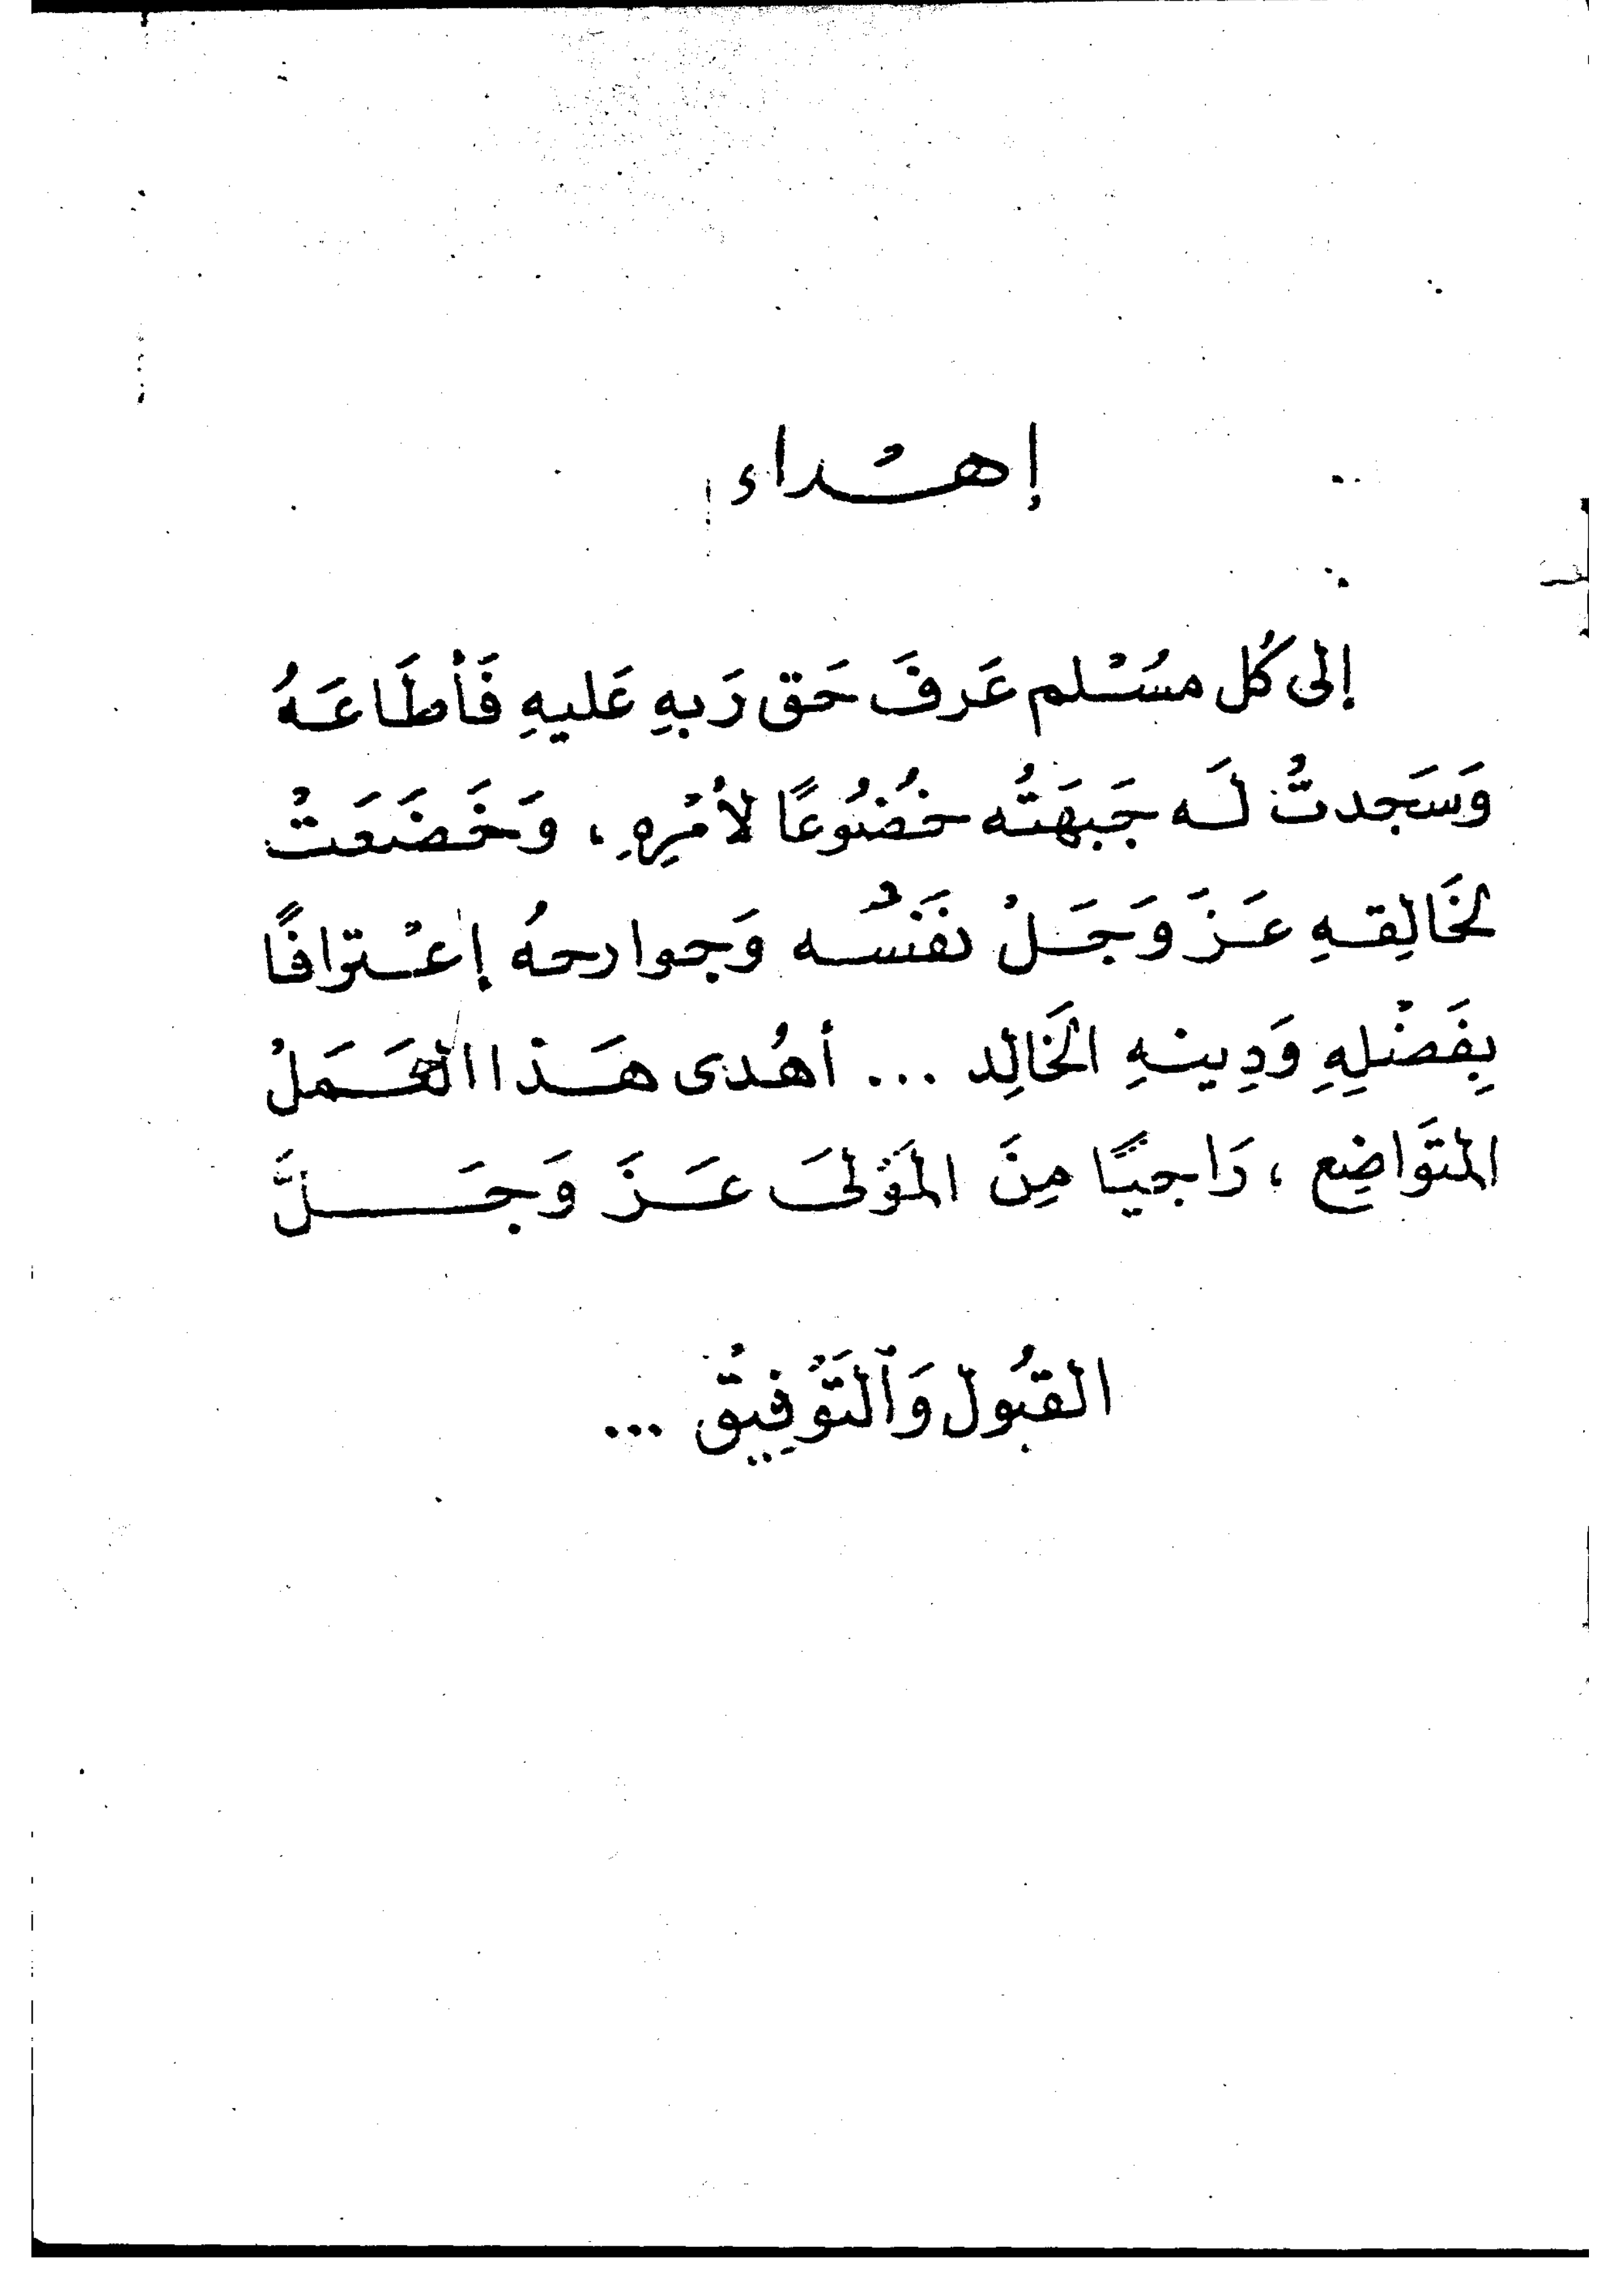 إهْداء
إلى كُل مسُسْلم عَرفَ حَق رَبهِ عَليهِ فَأطَاعَهُ
وَسَجدتْ لَه جَبهَتُه خُضُوعًا لأمْرِهِ ، وَخَضَعَتْ
لخَالِقهِ عَزَ وَجَلْ نفَسْه وَجوارحهُ إعْترافًا
بِفَضْلِهِ وَدِينهِ الخَالِد ... أهُدى هَذا العَمَلْ
المتَواضِع ، رَاجيًا مِنَ المَوْلىَ عَزَ وَجَلَّ
القبُول وَٱلتَوْفِيقْ ...